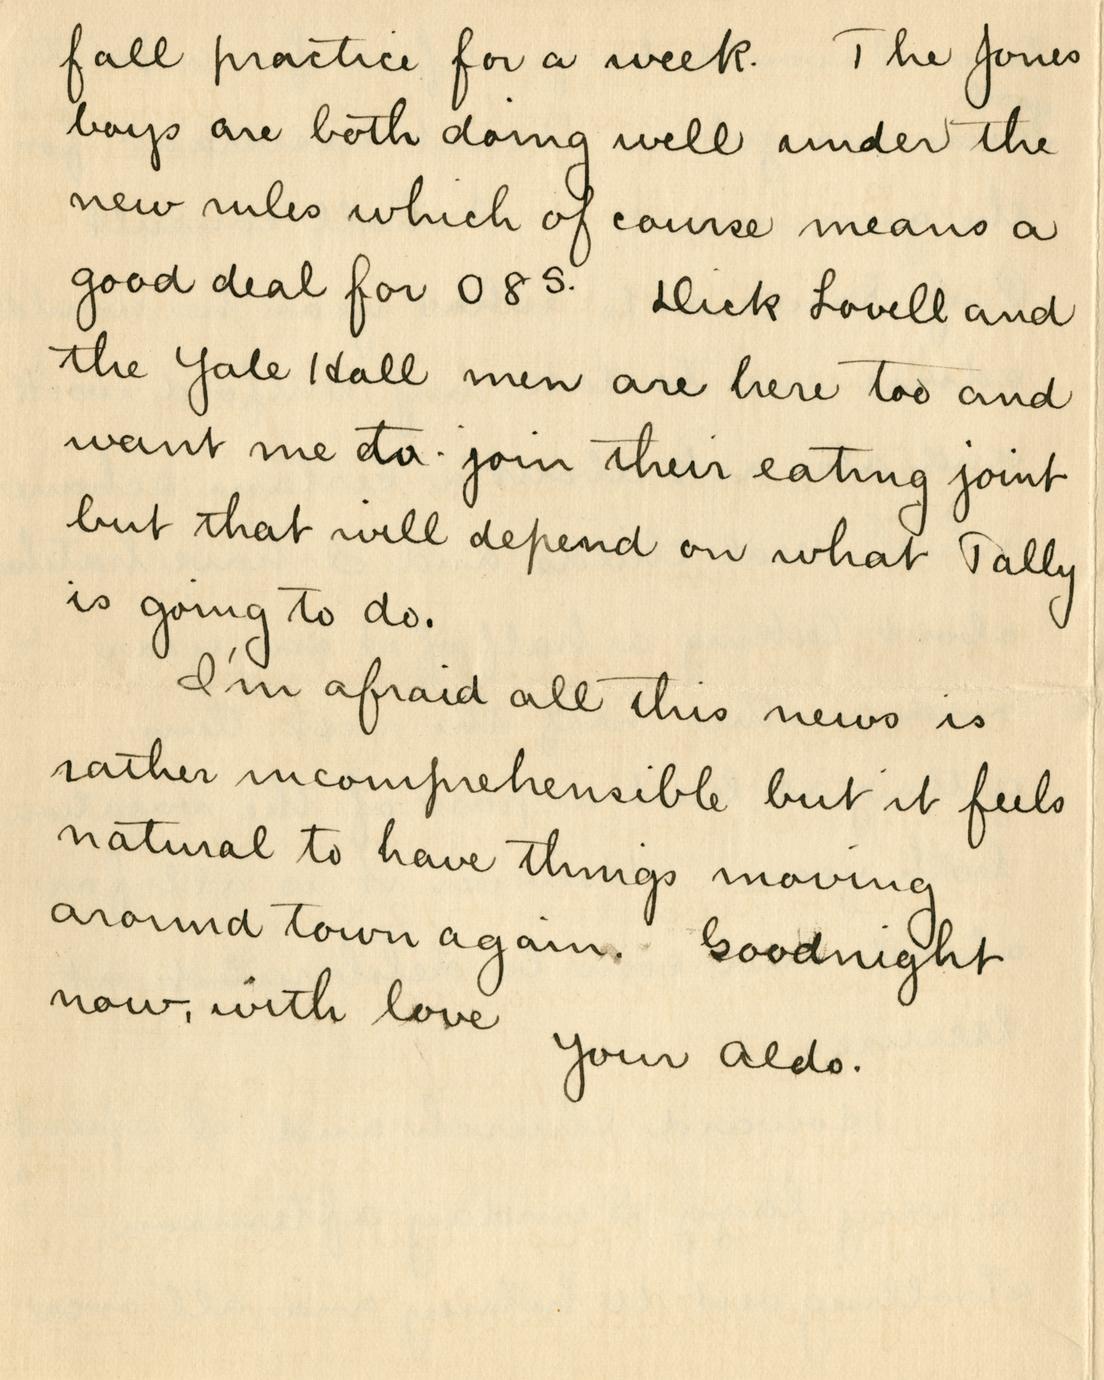 fall practice for a week. The Jones
boys are both doing well under the
new rules which of course means a
good deal for 08S. Dick Lovell and
the Yale Hall men are here too and
want me to join their eating joint
but that will depend on what Tally
is going to do.
I'm afraid all this news is
rather incomprehensible but it feels
natural to have things moving
around town again. Goodnight
now, with love
Your Aldo.